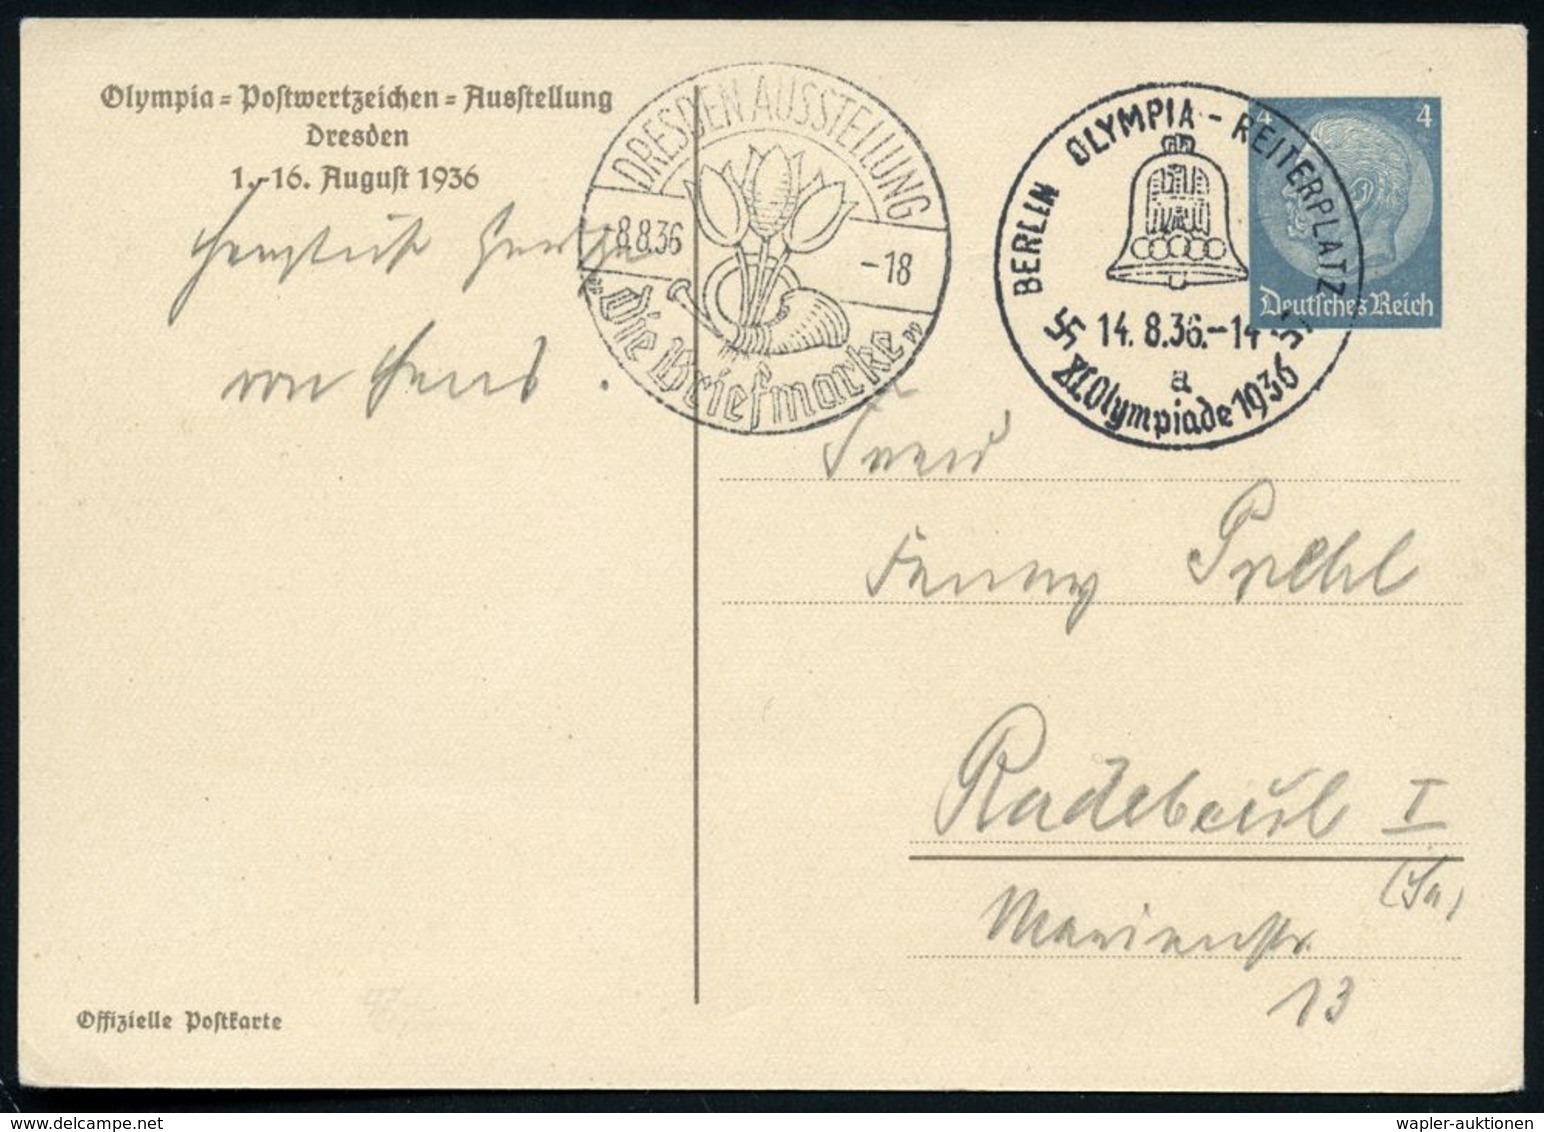 Olympia=Postwertzeichen=Ausstellung
Dresden
1.-16. August 1936
DRESDEN AUSSTELLUNG
8.8.36
-18
„Die Briefmarke”
BERLIN OLYMPIA-REITERPLATZ
14.8.36.-14
a
XI. Olympiade 1936
4 4
Deutsches Reich
von Hans.
Frau
Fanny
Radebeul I
(Sa)
Marienstr.
13
Offizielle Postkarte
wapler-auktionen